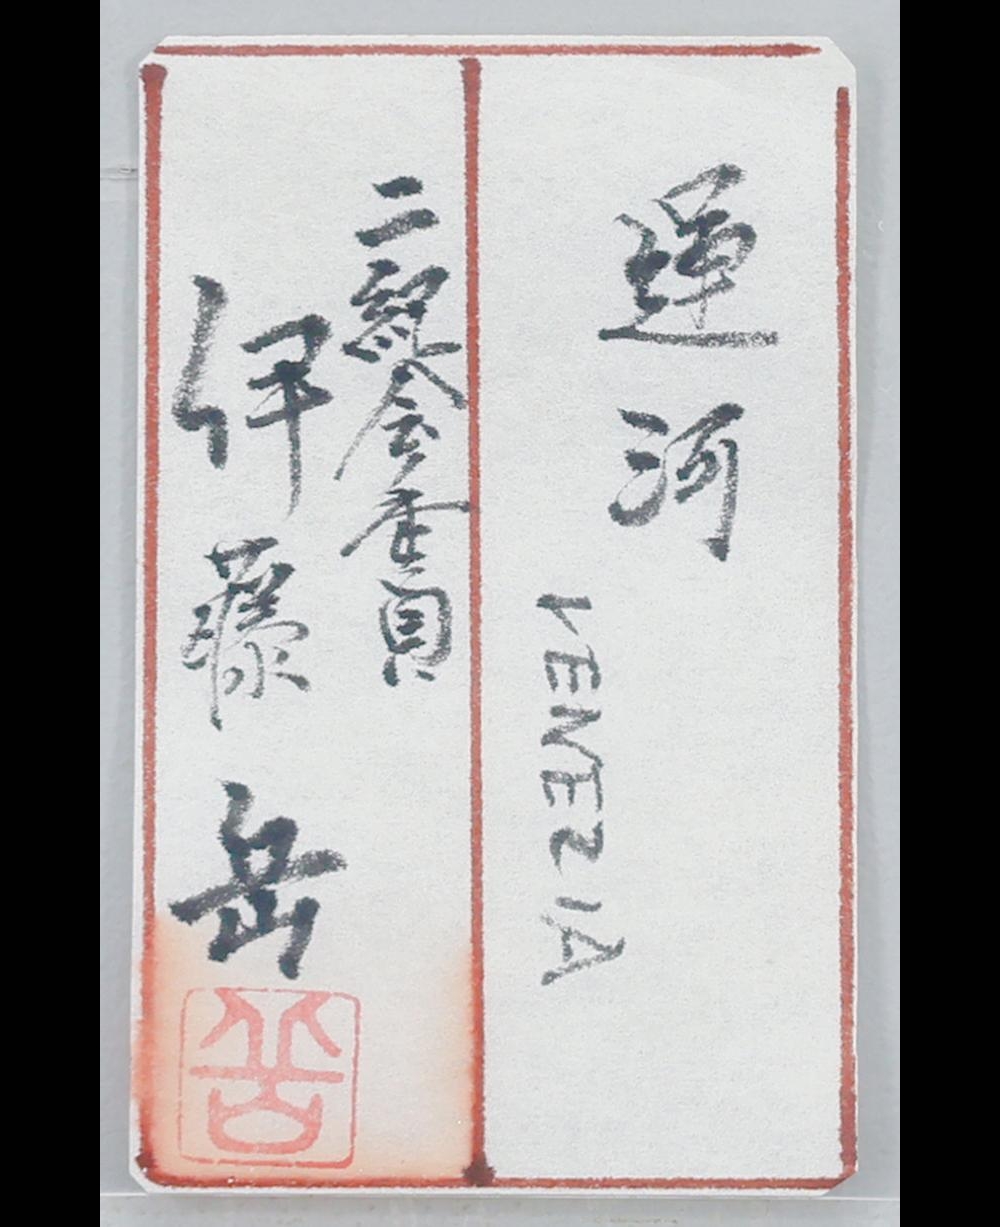 運河
VENEZIA
二紀会委員
伊藤岳